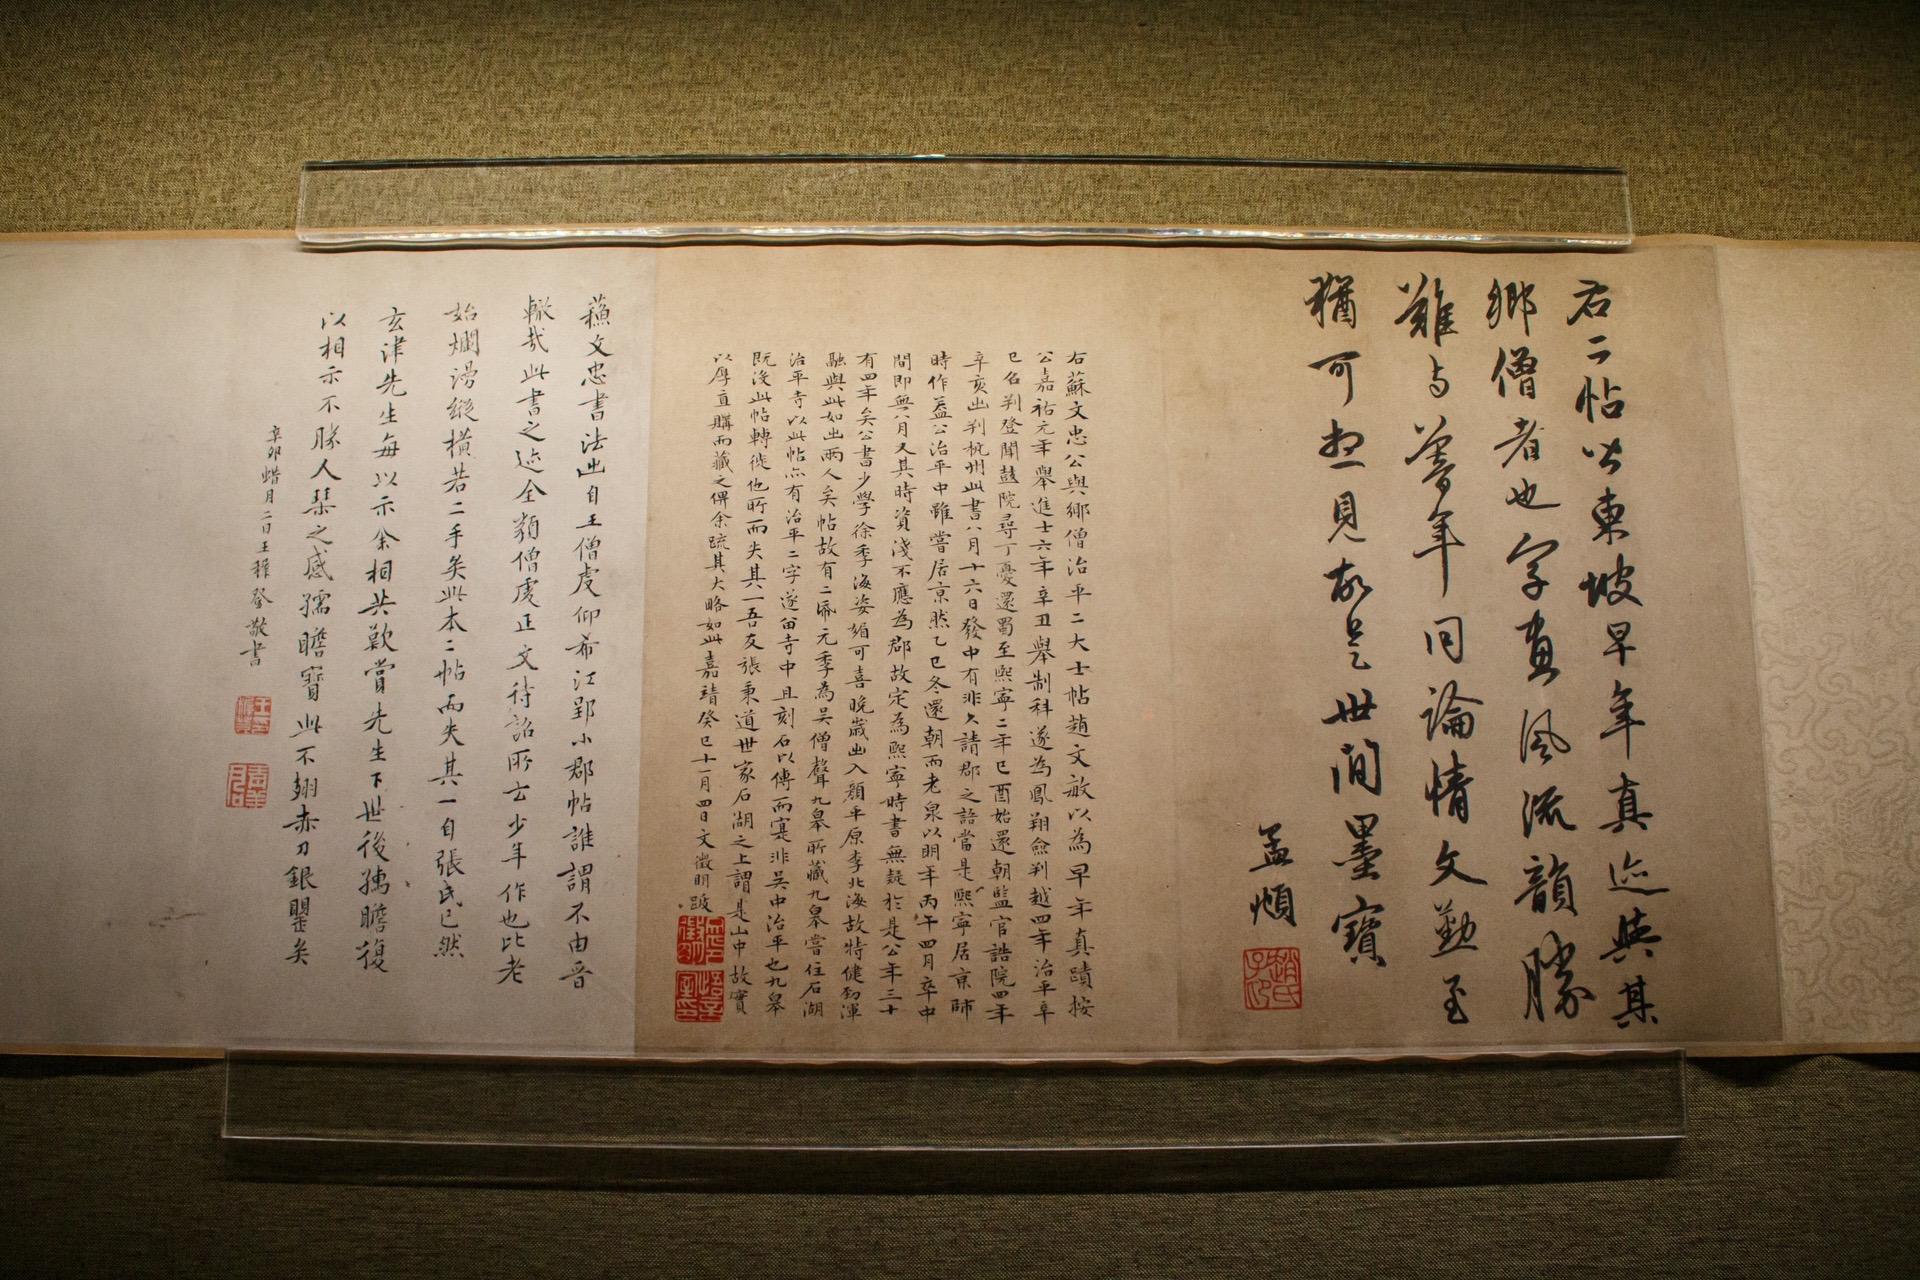 右二帖皆東坡早年真迹與其
鄉僧者也字畫風流韻勝
難與暮年同論情文勤至
猶可想見故是世間墨寶
孟頫
趙氏子昂
右蘇文忠公與鄉僧治平二大士帖趙文敏以為早年真蹟按
公嘉祐元年舉進士六年辛丑舉制科遂為鳳翔僉判越四年治平辛
巳名判登聞鼓院尋丁憂還蜀至熙寧二年己酉始還朝監官誥院四年
辛亥出判杭州此書八月十六日發中有非久請郡之語當是熙寧居京師
時作蓋公治平中雖嘗居京然乙巳冬還朝而老泉以明年丙午四月卒中
間即無八月又其時資淺不應為郡故定為熙寧時書無疑於是公年三十
有四年矣公書少學徐季海姿媚可喜晚歲出入顏平原李北海故特健勁渾
融與此如出兩人矣帖故有二帋元季為吳僧聲九皋所藏九皋嘗住石湖
治平寺以此帖亦有治平二字遂留寺中且刻石以傳而寔非吳中治平也九皋
既沒此帖轉徙他所而失其一吾友張秉道世家石湖之上謂是山中故實
以厚直購而藏之俾余疏其大略如此嘉靖癸巳十一月四日文徵明跋
蘇文忠書法出自王僧虔仰希江郢小郡帖誰謂不由晉
轍哉此書之迹全類僧虔正文待詔所云少年作也比老
始爛漫縱橫若二手矣此本二帖而失其一自張氏已然
玄津先生每以示余相共歎賞先生下世後孺瞻復
以相示不勝人琴之感孺瞻寶此不翅赤刀銀甖矣
辛卯蜡月二日王穉登敬書